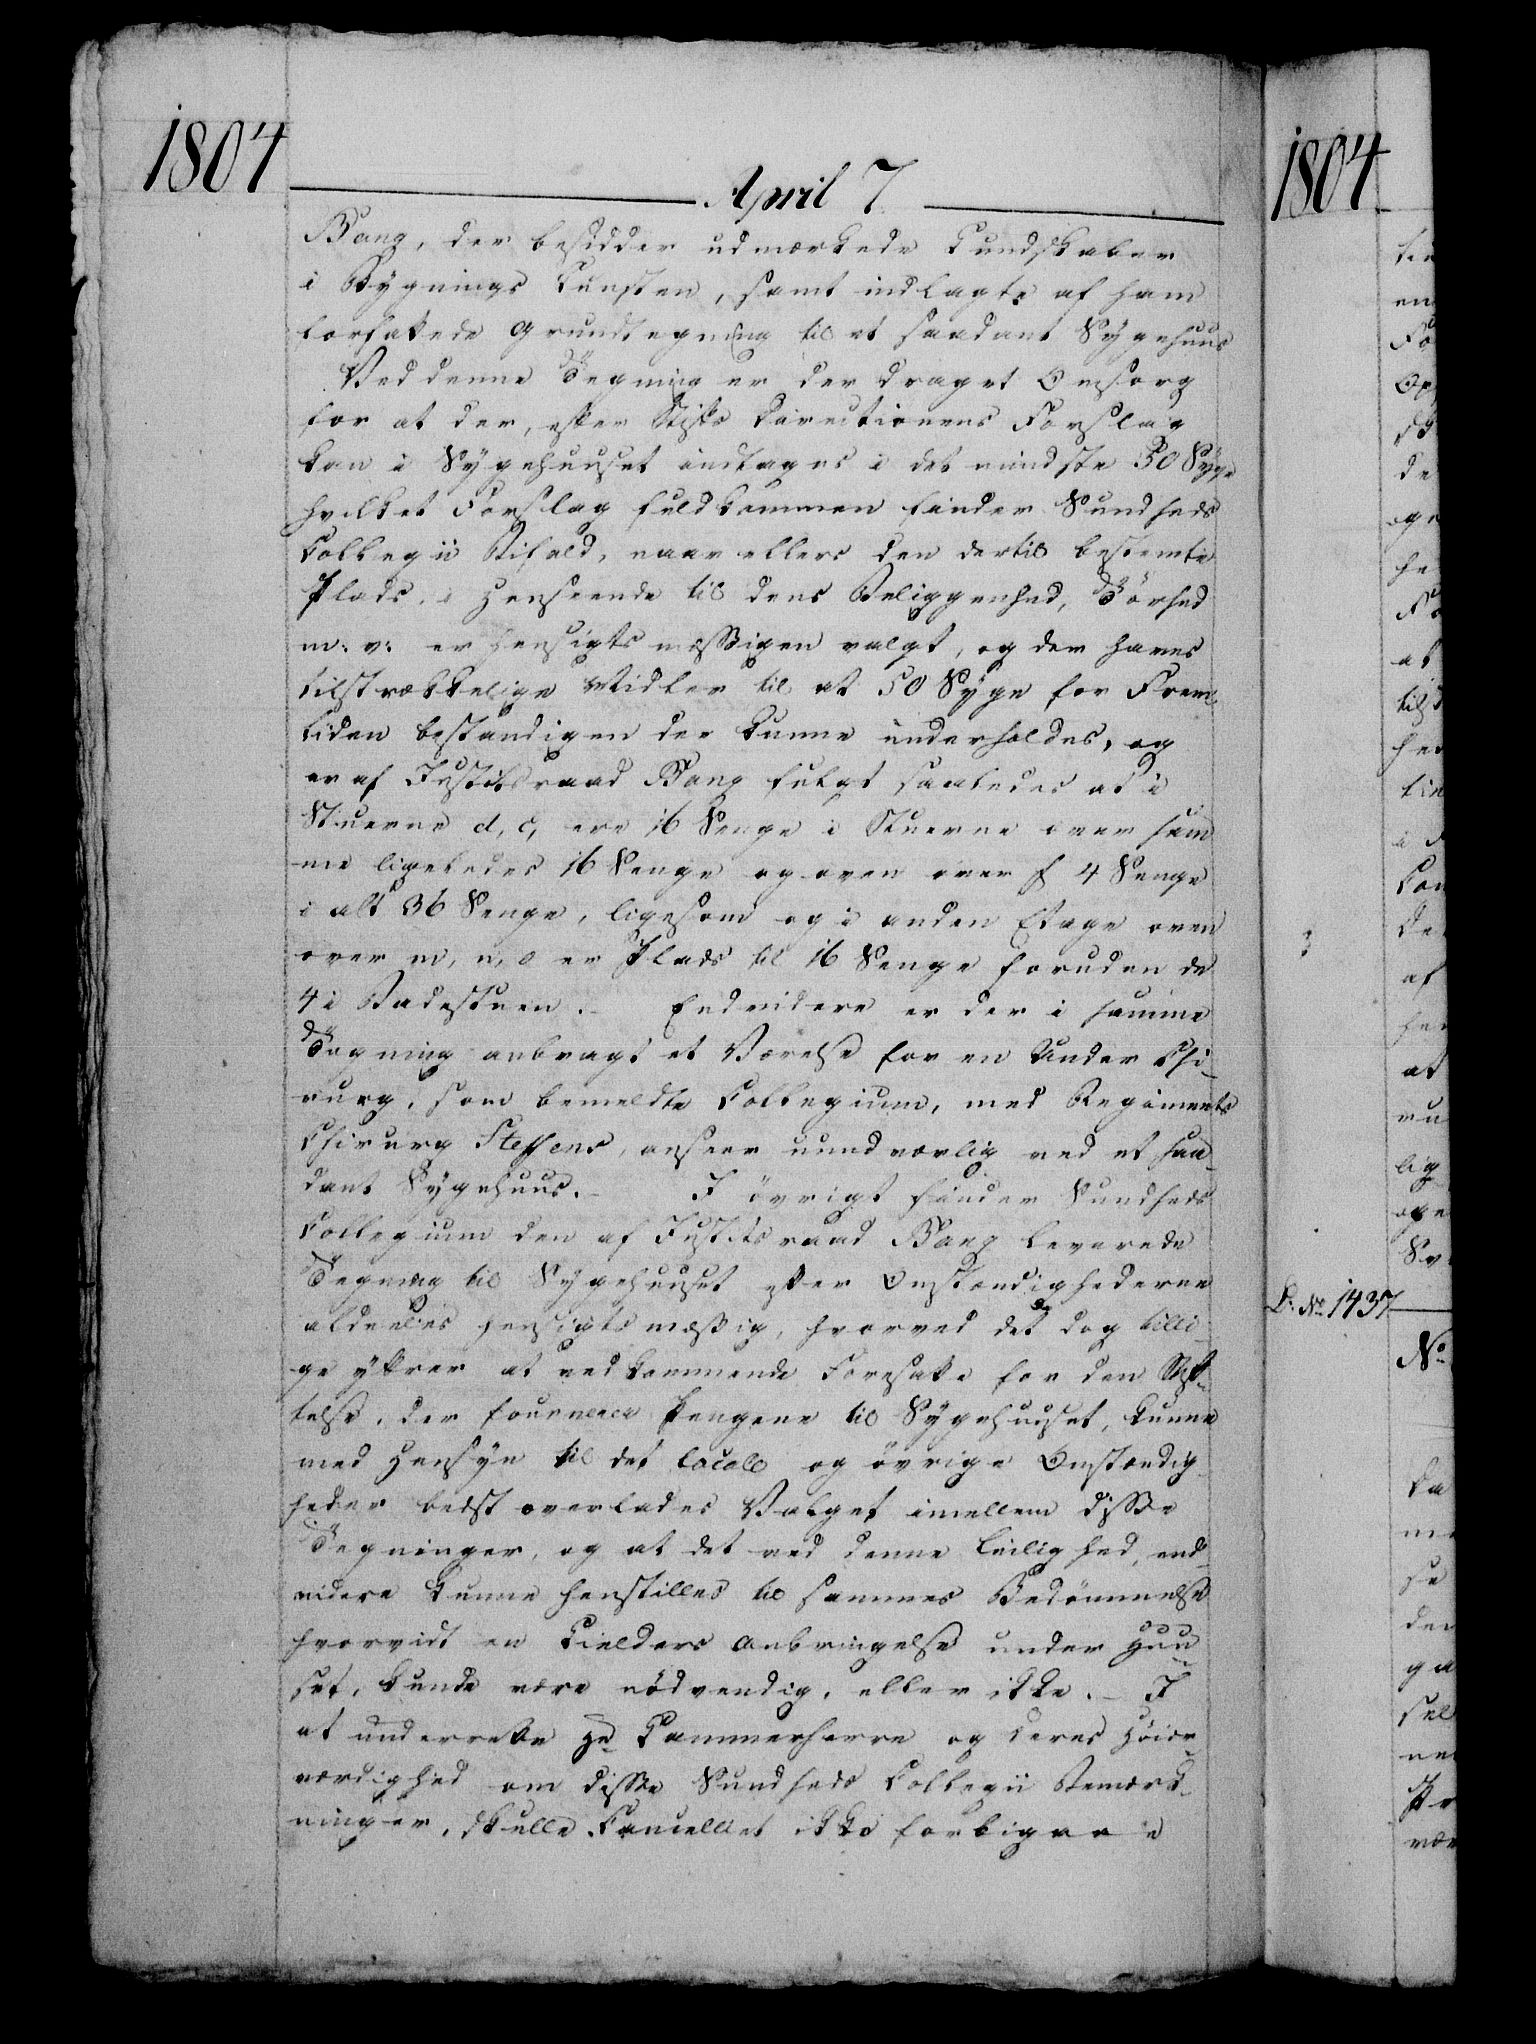 1804
April 7
Bang, der besidder udmærkede Kundskaber
i Bygnings Kunsten, samt indlagte af ham
forfattede Grundtegning til et saadant Sygehuus
Ved denne Tegning er der draget Omsorg
for at der, efter Stifts Directionens Forslag
kan i Sygehuuset indtages i det mindste 50 Syge
hvilket Forslag fuldkommen finder Sundheds
Collegii Bifald, naar ellers den dertil bestemte
Plads, i Henseende til dens Beliggenhed, Törhed
m: v: er hensigtsmæssigen valgt, og der haves
tilstrækkelige Midler til at 50 Syge for Frem-
tiden bestandigen der kunne underholdes, og
er af Justitsraad Bang fulgt saaledes at i
Stuerne d, c, ere 16 Senge i Stuerne over sam
me ligeledes 16 Senge og oven over f 4 Senge
i alt 36 Senge, ligesom og i anden Etage oven
over m, n, o er Plads til 16 Senge foruden de
4 i Badestuen. - Endvidere er der i samme
Tegning anbragt et Værelse for en Under Chi-
rurg, som bemeldte Collegium, med Regiments
Chirurg Steffens, anseer uundværlig ved et saa-
dant Sygehuus. - I övrigt finder Sundheds
Collegium den af Justitsraad Bang leverede
Tegning til Sygehuuset efter Omstændighederne
aldeeles hensigtsmæssig, hvorved det dog tilli-
ge yttrer at vedkommende Foresatte for den Stif-
telse, der fournerer Pengene til Sygehuuset, kunne
med Hensyn til det locale og övrige Omstændig-
heder bedst overlades Valget imellem disse
Tegninger, og at det ved denne Leilighed, end-
videre kunne henstilles til sammes Bedömmelse
hvorvidt en Kielders Anbringelse under Huu-
set, kunde være nödvendig, eller ikke. - I
at underrette Hr Kammerherre og Deres Höiær-
værdighed om disse Sundheds Collegii Bemærk-
ninger, skulle Cancelliet ikke forbigaae
1804
L: No 1437
No